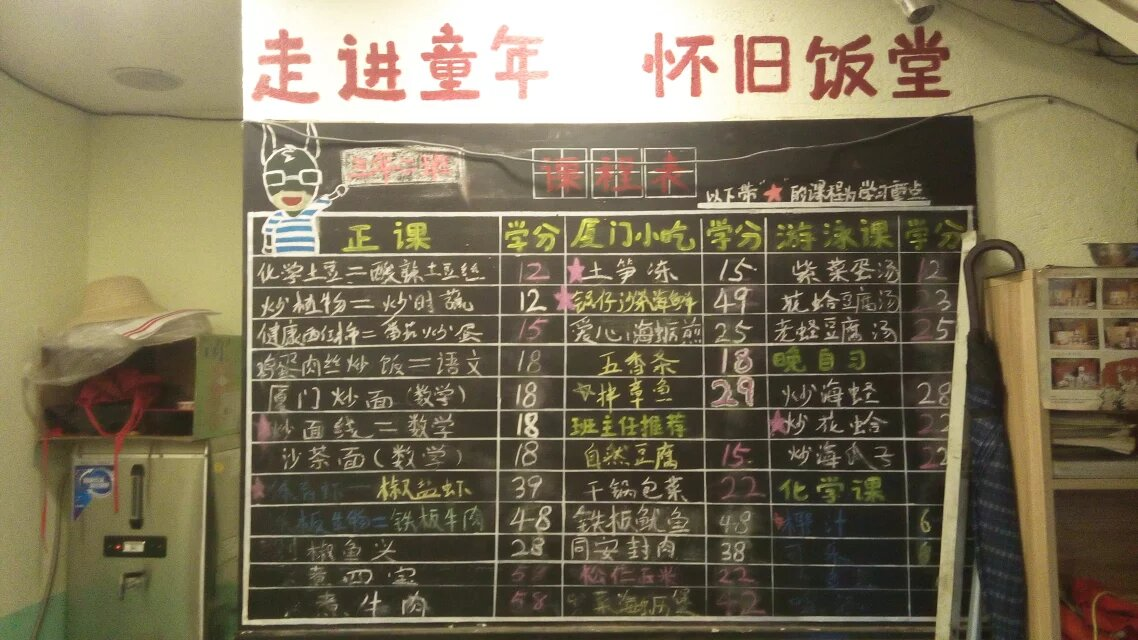 走进童年 怀旧饭堂
三年二班 课程表
以下带★的课程为学习重点
正课 学分 厦门小吃 学分 游泳课 学分
化学土豆=酸辣土豆丝 12 ★土笋冻 15 紫菜蛋汤 12
炒植物=炒时蔬 12 ★锅仔沙茶海鲜 49 花蛤豆腐汤 23
健康西红柿=番茄炒蛋 15 爱心海蛎煎 25 老蛏豆腐汤 25
鸡蛋肉丝炒饭=语文 18 五香条 18 晚自习
厦门炒面(数学) 18 ☆拌章鱼 29 炒海蛏 28
★炒面线=数学 18 班主任推荐 ★炒花蛤 22
沙茶面(数学) 18 自然豆腐 15 炒海瓜子 22
★体育虾=椒盐虾 39 干锅包菜 22 化学课
铁板生物=铁板牛肉 48 铁板鱿鱼 48 椰汁 6
椒鱼 28 同安封肉 38
煮四宝 58 松仁玉米 22
煮牛肉 58 菜海蛎煲 42